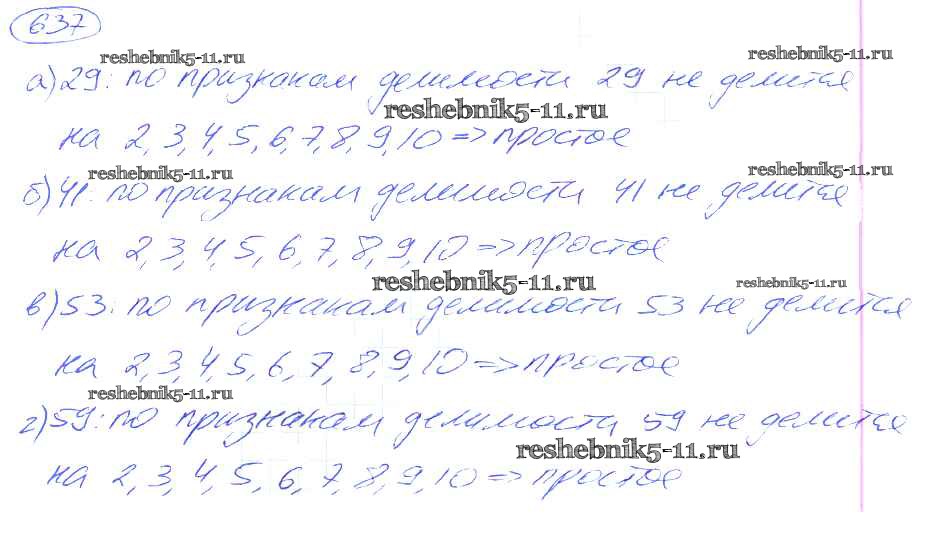 637
reshebnik5-11.ru
reshebnik5-11.ru
а) 29: по признакам делимости 29 не делится
reshebnik5-11.ru
на 2, 3, 4, 5, 6, 7, 8, 9, 10 => простое
reshebnik5-11.ru
reshebnik5-11.ru
б) 41: по признакам делимости 41 не делится
на 2, 3, 4, 5, 6, 7, 8, 9, 10 => простое
reshebnik5-11.ru
reshebnik5-11.ru
в) 53: по признакам делимости 53 не делится
на 2, 3, 4, 5, 6, 7, 8, 9, 10 => простое
reshebnik5-11.ru
г) 59: по признакам делимости 59 не делится
reshebnik5-11.ru
на 2, 3, 4, 5, 6, 7, 8, 9, 10 => простое